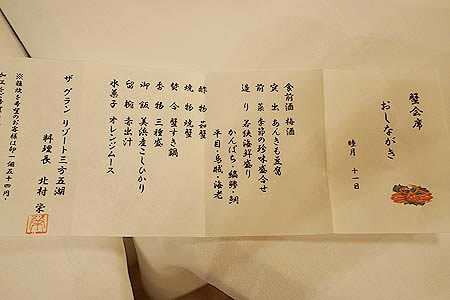 蟹会席
おしながき
睦月 十一日
食前酒 梅酒
突出 あんきも豆腐
前菜 季節の珍味盛合せ
造り 若狭海鮮盛り
かんぱち・縞鯵・鯛
平目・烏賊・海老
酢物 茹蟹
焼物 焼蟹
鍋合 蟹すき鍋
香物 三種盛
御飯 美浜産こしひかり
留椀 赤出汁
水菓子 オレンジムース
ザ グラン リゾート三方五湖
料理長 北村 栄
※雑炊を希望のお客様は卵一個五十四円・